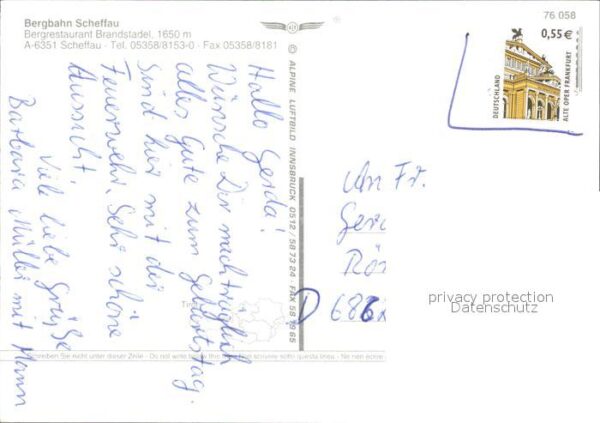 Bergbahn Scheffau
Bergrestaurant Brandstadel, 1650 m
A-6351 Scheffau · Tel. 05358/8153-0 · Fax 05358/8181
76 058
0,55 €
DEUTSCHLAND
ALTE OPER FRANKFURT
© ALPINE LUFTBILD INNSBRUCK 0512/58 73 24
Hallo Gerda!
Wünsche Dir nachträglich
alles Gute zum Geburtstag.
Sind hier mit der
Feuerwehr. Sehr schöne
Aussicht
Viele liebe Grüße
Barbara Müller mit Mann
An Fr.
D
privacy protection
Datenschutz
Schreiben Sie nicht unter dieser Zeile - Do not write below this line - Non scrivere sotto questa linea - Ne rien écrire